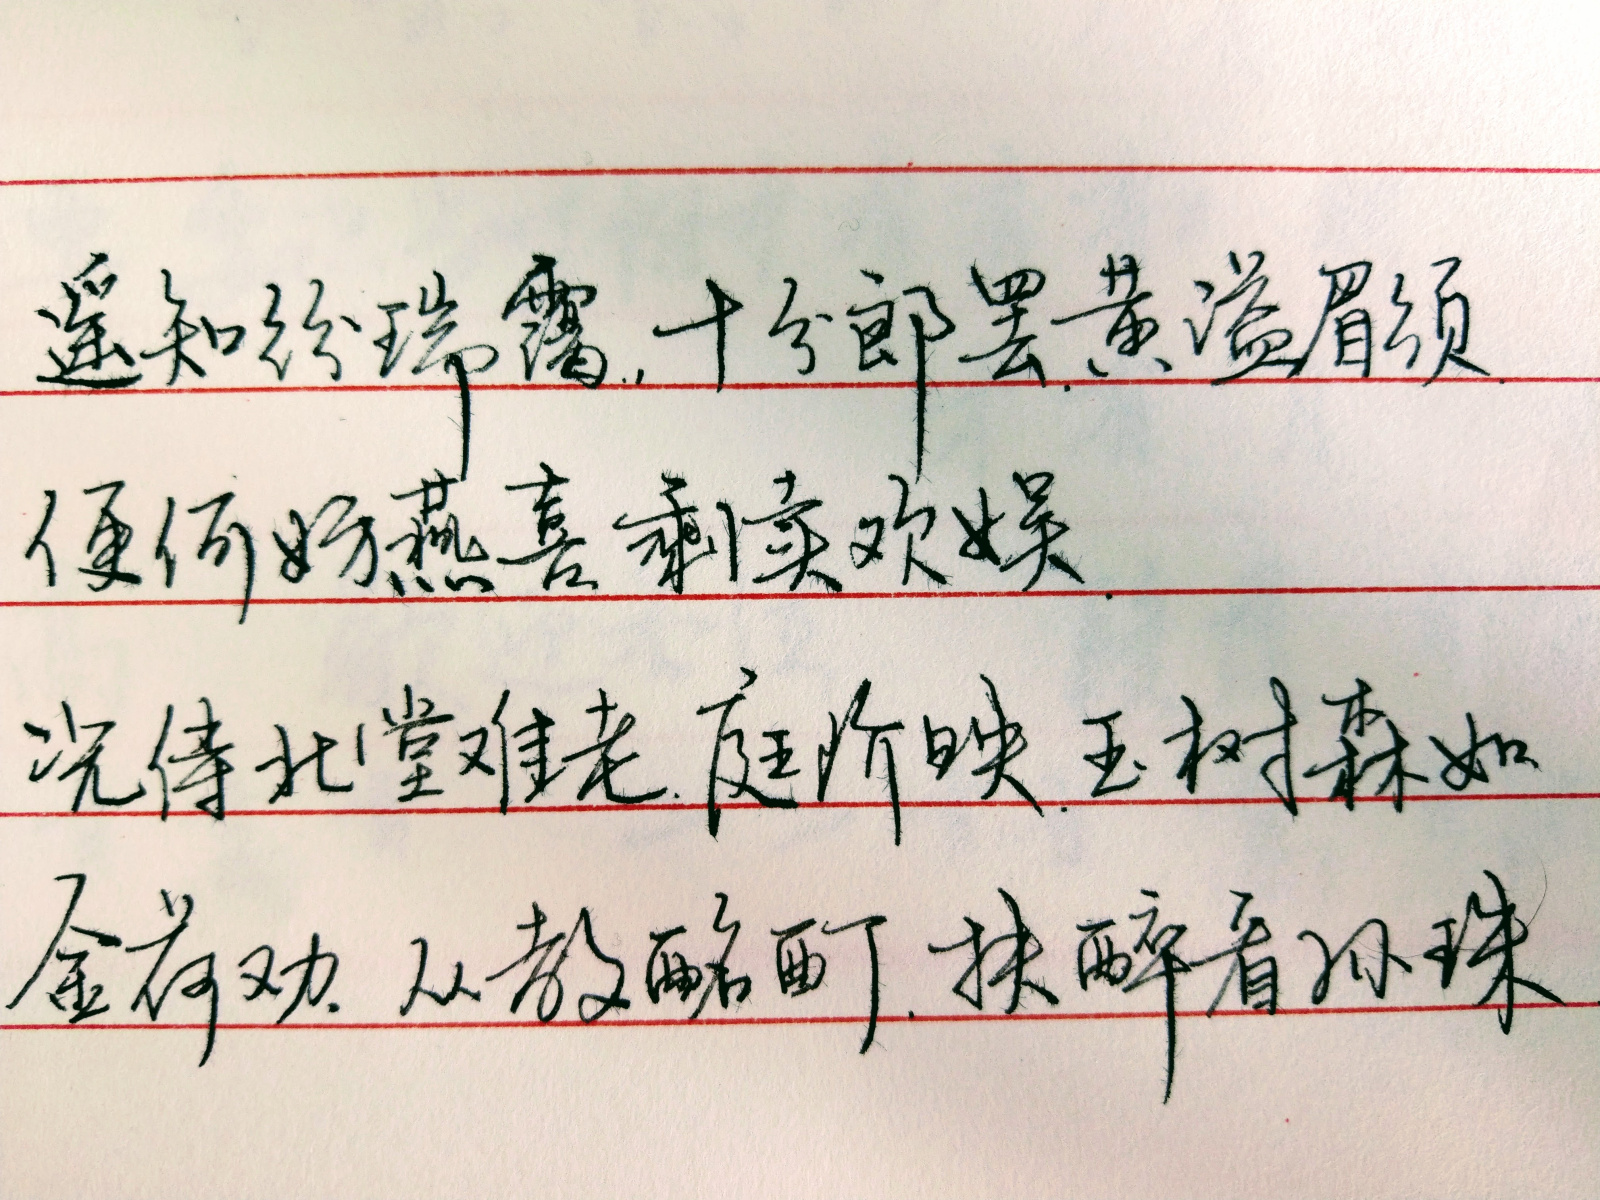 遥知纷瑞霭.,十分郎罢.黄溢眉须.
便何妨燕喜剩卖欢娱.
况侍北堂难老.庭阶映.玉树森如
金荷劝.从教酩酊.扶醉看孙珠